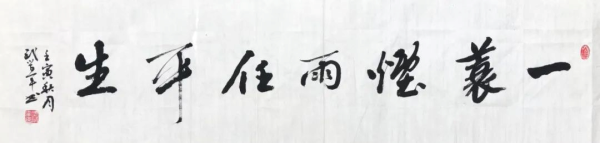 一蓑烟雨任平生
壬寅秋月